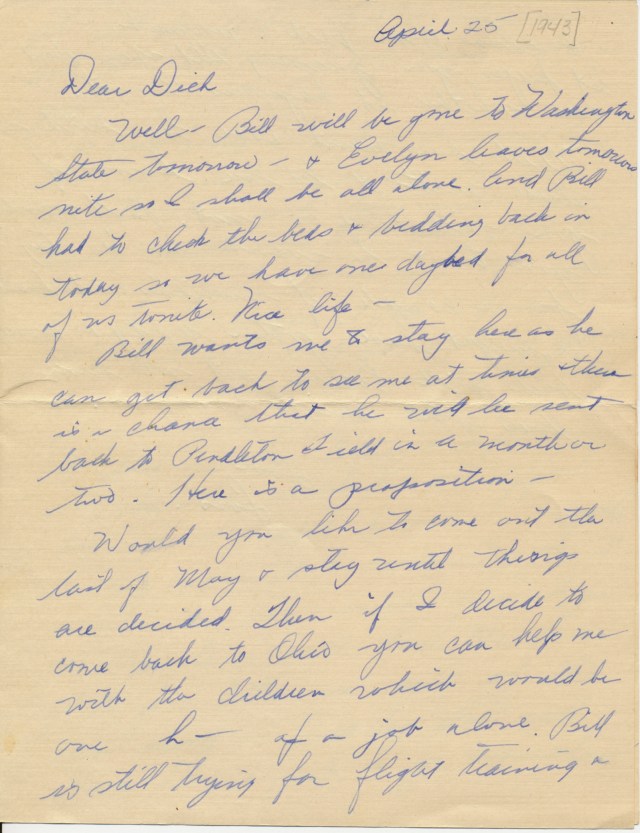 April 25 [1943]
Dear Dick
Well - Bill will be gone to Washington
State tomorrow - & Evelyn leaves tomorrow
nite so I shall be all alone. And Bill
had to check the beds & bedding back in
today so we have one daybed for all
of us tonite. Nice life -
Bill wants me to stay here as he
can get back to see me at times & there
is a chance that he will be sent
back to Pendleton Field in a month or
two. Here is a proposition -
Would you like to come out the
last of May & stay until things
are decided. Then if I decide to
come back to Ohio you can help me
with the children which would be
one h— of a job alone. Bill
is still trying for flight training &